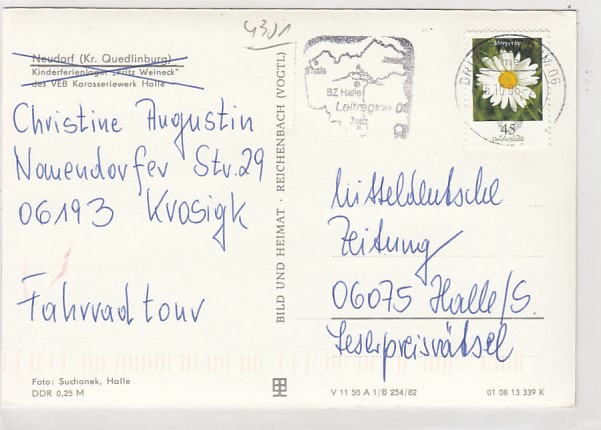 4301
Neudorf (Kr. Quedlinburg)
Kinderferienlager "Fritz Weineck"
des VEB Karosseriewerk Halle
Christine Augustin
Nauendorfer Str. 29
06193 Krosigk
Fahrradtour
Foto: Suchanek, Halle
DDR 0,25 M
BILD UND HEIMAT · REICHENBACH (VOGTL)
BZ Halle
Leitregion 06
Margerite
45
Deutschland
Mitteldeutsche
Zeitung
06075 Halle/S.
Leserpreisrätsel
V 11 50 A 1/B 254/82
01 08 13 339 K